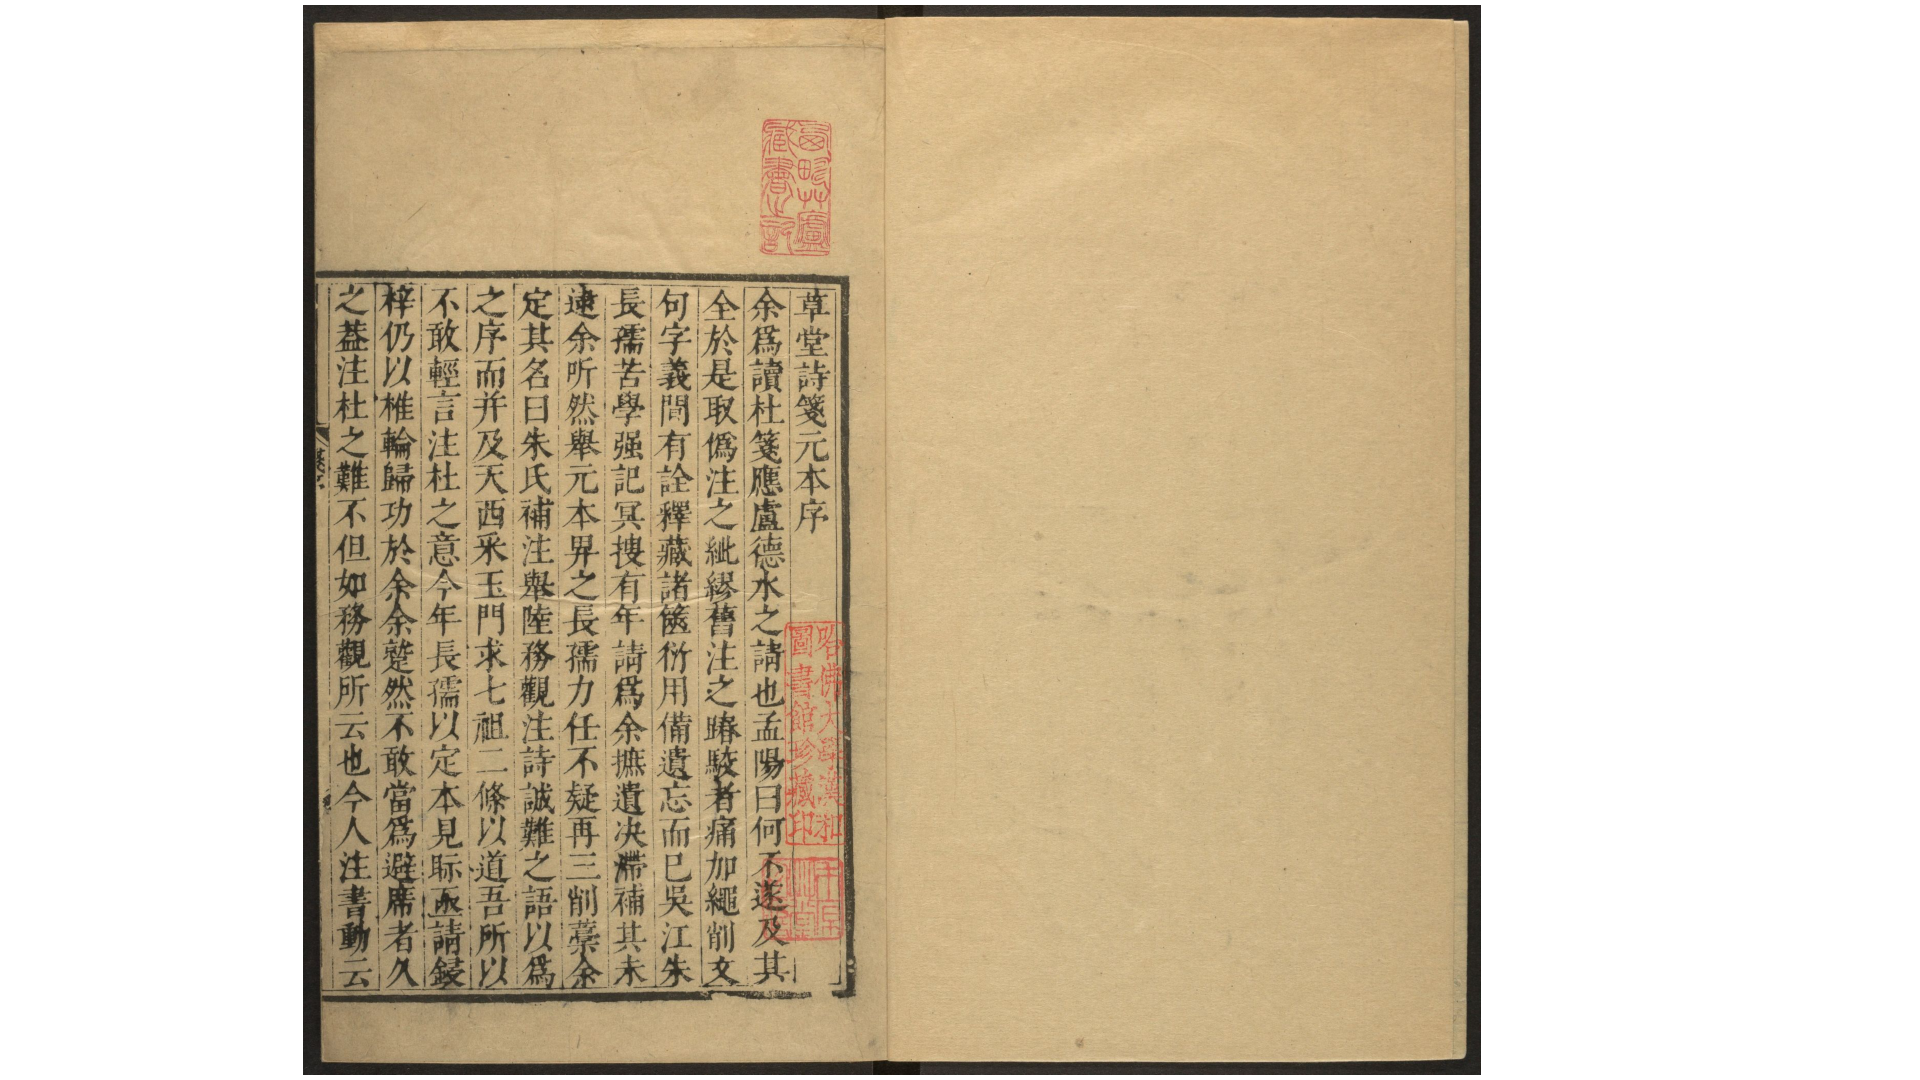 草堂詩箋元本序
余爲讀杜箋應盧德水之請也孟陽曰何不遂及其
全於是取僞注之紕繆舊注之踳駮者痛加繩削文
句字義間有詮釋藏諸篋衍用備遺忘而已吳江朱
長孺苦學强記冥搜有年請爲余摭遺决滯補其未
逮余听然舉元本畀之長孺力任不疑再三削藁余
定其名曰朱氏補注舉陸務觀注詩誠難之語以爲
之序而并及天西采玉門求七祖二條以道吾所以
不敢輕言注杜之意今年長孺以定本見眎亟請鋟
梓仍以椎輪歸功於余余蹵然不敢當爲避席者久
之葢注杜之難不但如務觀所云也今人注書動云
藏書之記
哈佛大學漢和
圖書館珍藏印